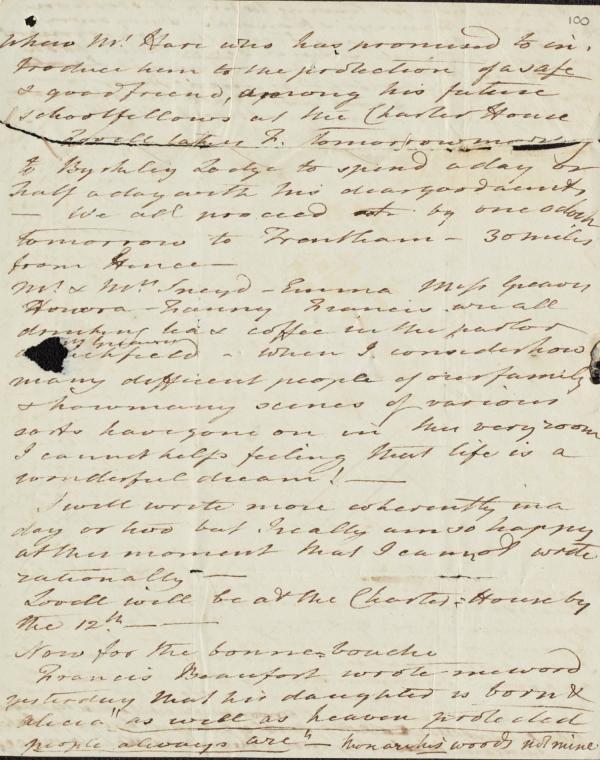 100
when Mr. Hare who has promised to in-
troduce him to the protection of a safe
& good friend, among his future
schoolfellows at the Charter House
Lovell takes F. tomorrow morng
to Byrkley Lodge to spend a day or
half a day with his dear good aunts
— We all proceed by one oclock
tomorrow to Trentham — 30 miles
from Hence —
Mr & Mrs Sneyd — Emma Miss Greaves
Honora — Fanny Francis are all
drinking tea & coffee in the parlor
Lichfield — When I consider how
many different people of our family
& how many scenes of various
sorts have gone on in this very room
I cannot help feeling that life is a
wonderful dream! —
I will write more coherently in a
day or two but I really am so happy
at this moment that I cannot write
rationally —
Lovell will be at the Charter-House by
the 12th — —
Now for the bonne-bouche
Francis Beaufort wrote me word
yesterday that his daughter is born &
alicia "as well as heaven protected
people always are" — Mon ar his words not mine